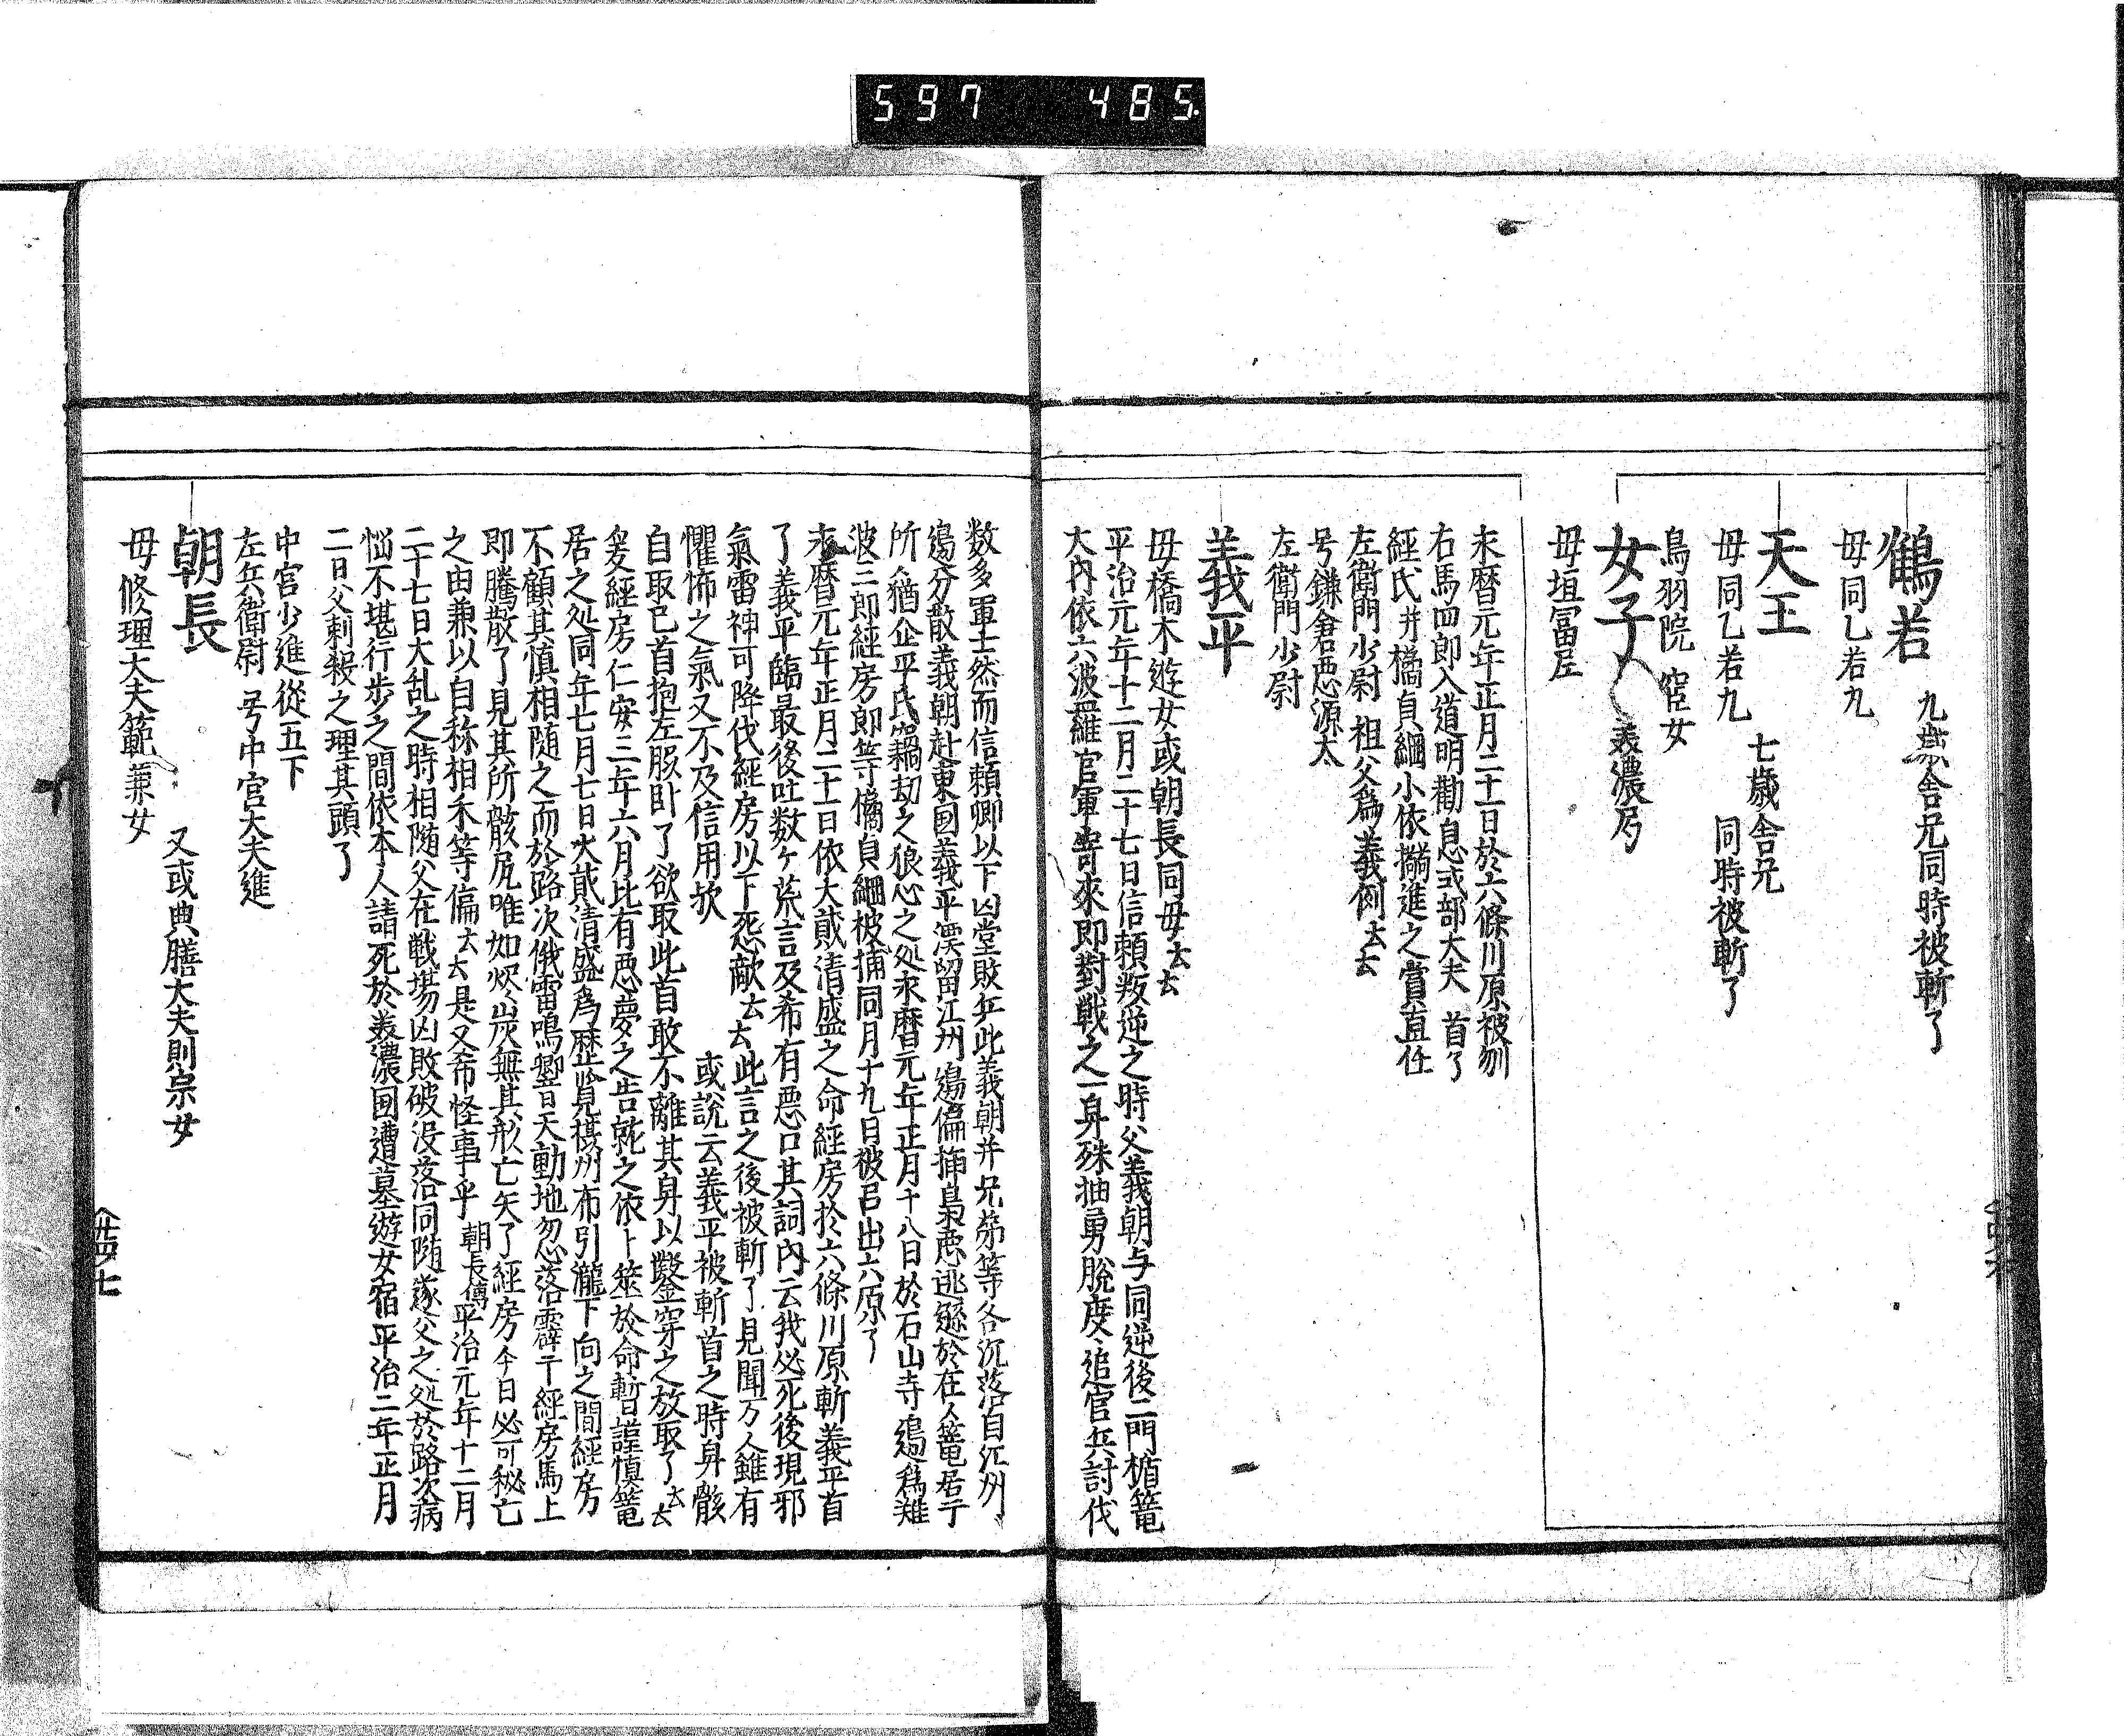 597 485.
鶴若 九歳舎兄同時被斬了
毋同乙若九
天王 七歳舎兄同時被斬了
毋同乙若九
鳥羽院 女
女子 美濃
毋垣冨
永暦元年正月二十一日於六條川原被刎首了
右馬四郎入道明勸息式部大夫
経氏并橘貞綱小依搦進之賞直任
左衛門少尉 祖父爲義例去去
号鎌倉悪源太
左衛門少尉
義平
毋橋木遊女或朝長同毋去去
平治元年十二月二十七日信頼叛逆之時父義朝与同逆後二門楯篭
大内依六波羅官軍寄來即對戦之一身殊抽勇脱度々追官兵討伐
数多軍士然而信頼卿以下凶堂敗乒此義朝并兄弟等各沉落自江州
邉分散義朝赴東国義平漂留江州邉偏挿梟悪逃遯於在人篭居于
所々猶企平氏竊劫之狼心之処永暦元年正月十八日於石山寺邉爲難
波三郎経房郎等橘貞綱被捕同月十九日被召出六原了
永暦元年正月二十一日依大貮清盛之命経房於六條川原斬義平首
了義平臨最後吐数ケ荒言及希有悪口其詞内云我必死後現邪
氣雷神可降伐経房以下悉敵去去此言之後被斬了見聞万人雖有
懼怖之氣又不及信用欤 或說云義平被斬首之時身骸
自取已首抱左脇卧了欲取此首敢不離其身以鑿穿之放取了去去
爰経房仁安三年六月比有悪夢之告就之依卜筮於命暫謹慎篭
居之処同年七月七日大貮清盛爲歴覧摂州布引瀧下向之間経房
不顧其慎相随之而於路次俄雷鳴響天動地忽落霹于経房馬上
即騰散了見其所骸尻唯如炊炭無其形亡矣了経房今日必可秘亡
之由兼以自称相禾等偏去去是又希怪事乎 朝長傳平治元年十二月
二十七日大乱之時相随父在戦場凶敗破没落同随遂父之処於路次病
悩不堪行歩之間依本人請死於美濃国遭墓遊女宿平治二年正月
二日父刺殺之理其頭了
中宮少進從五下
左兵衛尉 号中宮大夫進
朝長 又或典膳大夫則宗女
毋修理大夫範兼女